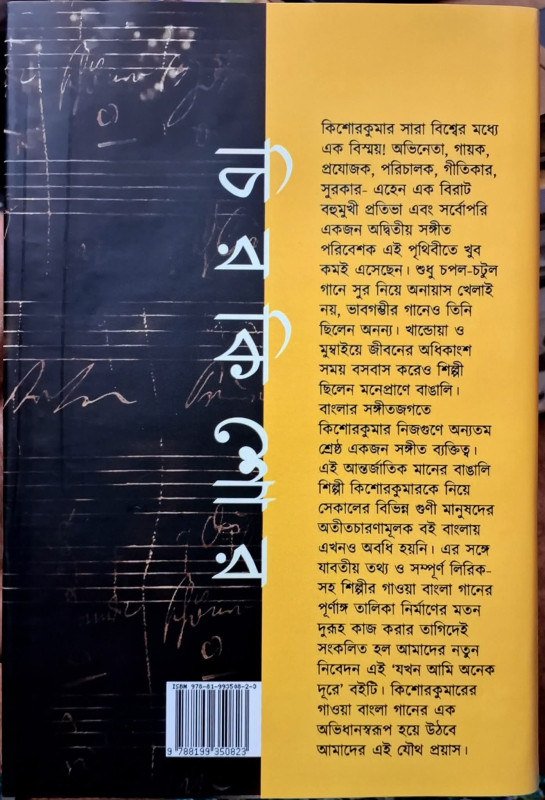 চিরকিশোর
কিশোরকুমার সারা বিশ্বের মধ্যে
এক বিস্ময়! অভিনেতা, গায়ক,
প্রযোজক, পরিচালক, গীতিকার,
সুরকার- এহেন এক বিরাট
বহুমুখী প্রতিভা এবং সর্বোপরি
একজন অদ্বিতীয় সঙ্গীত
পরিবেশক এই পৃথিবীতে খুব
কমই এসেছেন। শুধু চপল-চটুল
গানে সুর নিয়ে অনায়াস খেলাই
নয়, ভাবগম্ভীর গানেও তিনি
ছিলেন অনন্য। খান্ডোয়া ও
মুম্বাইয়ে জীবনের অধিকাংশ
সময় বসবাস করেও শিল্পী
ছিলেন মনেপ্রাণে বাঙালি।
বাংলার সঙ্গীতজগতে
কিশোরকুমার নিজগুণে অন্যতম
শ্রেষ্ঠ একজন সঙ্গীত ব্যক্তিত্ব।
এই আন্তর্জাতিক মানের বাঙালি
শিল্পী কিশোরকুমারকে নিয়ে
সেকালের বিভিন্ন গুণী মানুষদের
অতীতচারণামূলক বই বাংলায়
এখনও অবধি হয়নি। এর সঙ্গে
যাবতীয় তথ্য ও সম্পূর্ণ লিরিক-
সহ শিল্পীর গাওয়া বাংলা গানের
পূর্ণাঙ্গ তালিকা নির্মাণের মতন
দুরূহ কাজ করার তাগিদেই
সংকলিত হল আমাদের নতুন
নিবেদন এই ‘যখন আমি অনেক
দূরে’ বইটি। কিশোরকুমারের
গাওয়া বাংলা গানের এক
অভিধানস্বরূপ হয়ে উঠবে
আমাদের এই যৌথ প্রয়াস।
9 788199 350823